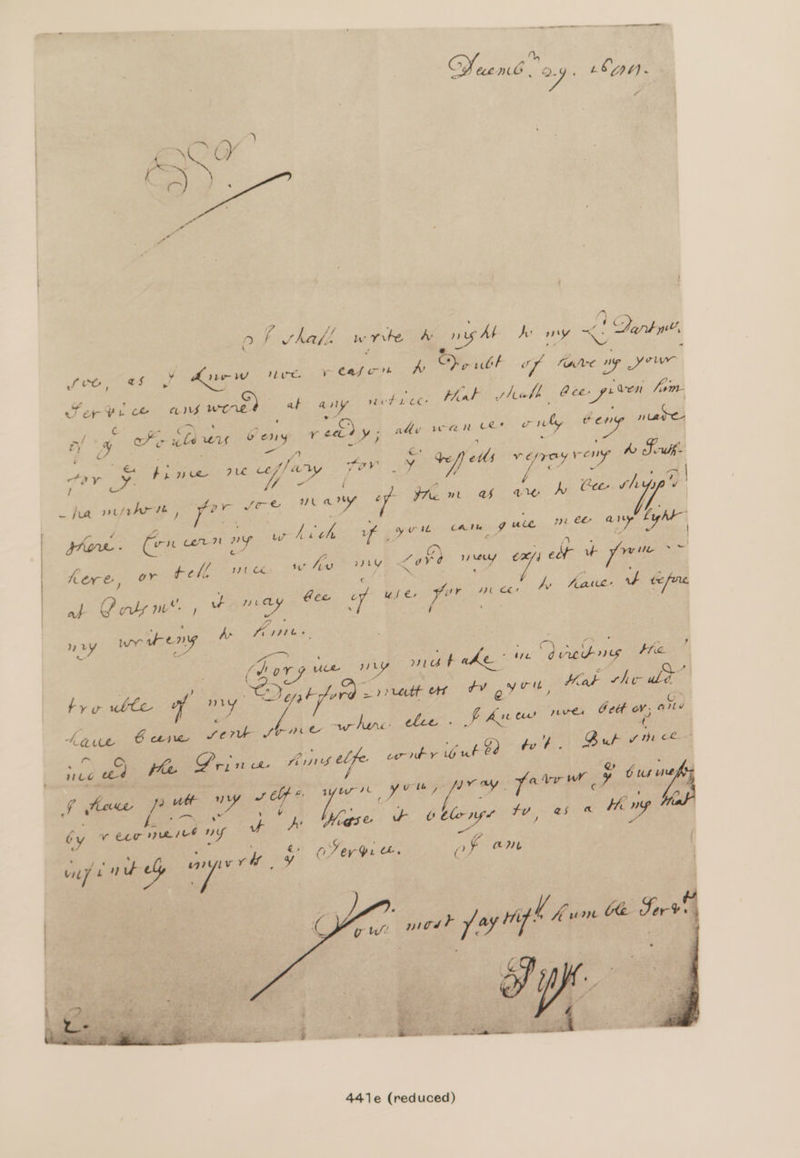 Decemb.r 27.
S.r
I shall write to night to my L.d Dartm.o
soe, as I know noe reason to Doubt of have.ng your
Service answered at any notice that shall bee given him
of y.e Souldiers being ready; allowance only being made
for y.e time necessary for y.e Vessells repayreing to
, for soe many of them as are to bee shipp'd
here. Concerning which if you can give mee any light
here, or tell mee who my Lord may expect it from
at Portsm.o, it may bee of use for mee to have it before
my writeing to him.
Forgive my mistake in directing the
trouble of my Deptford-matter to you, that should
have beene sent some where else. I knew noe bettor, and
indeed the Prince himselfe contributed to't. But since
I have putt my selfe upon you, pray favour y.e business
by recommending it to those it belongs to, as a thing that
infinitely imports y.e Service. I am
Your most faythfull humble Serv.t
Pepys.
441e (reduced)